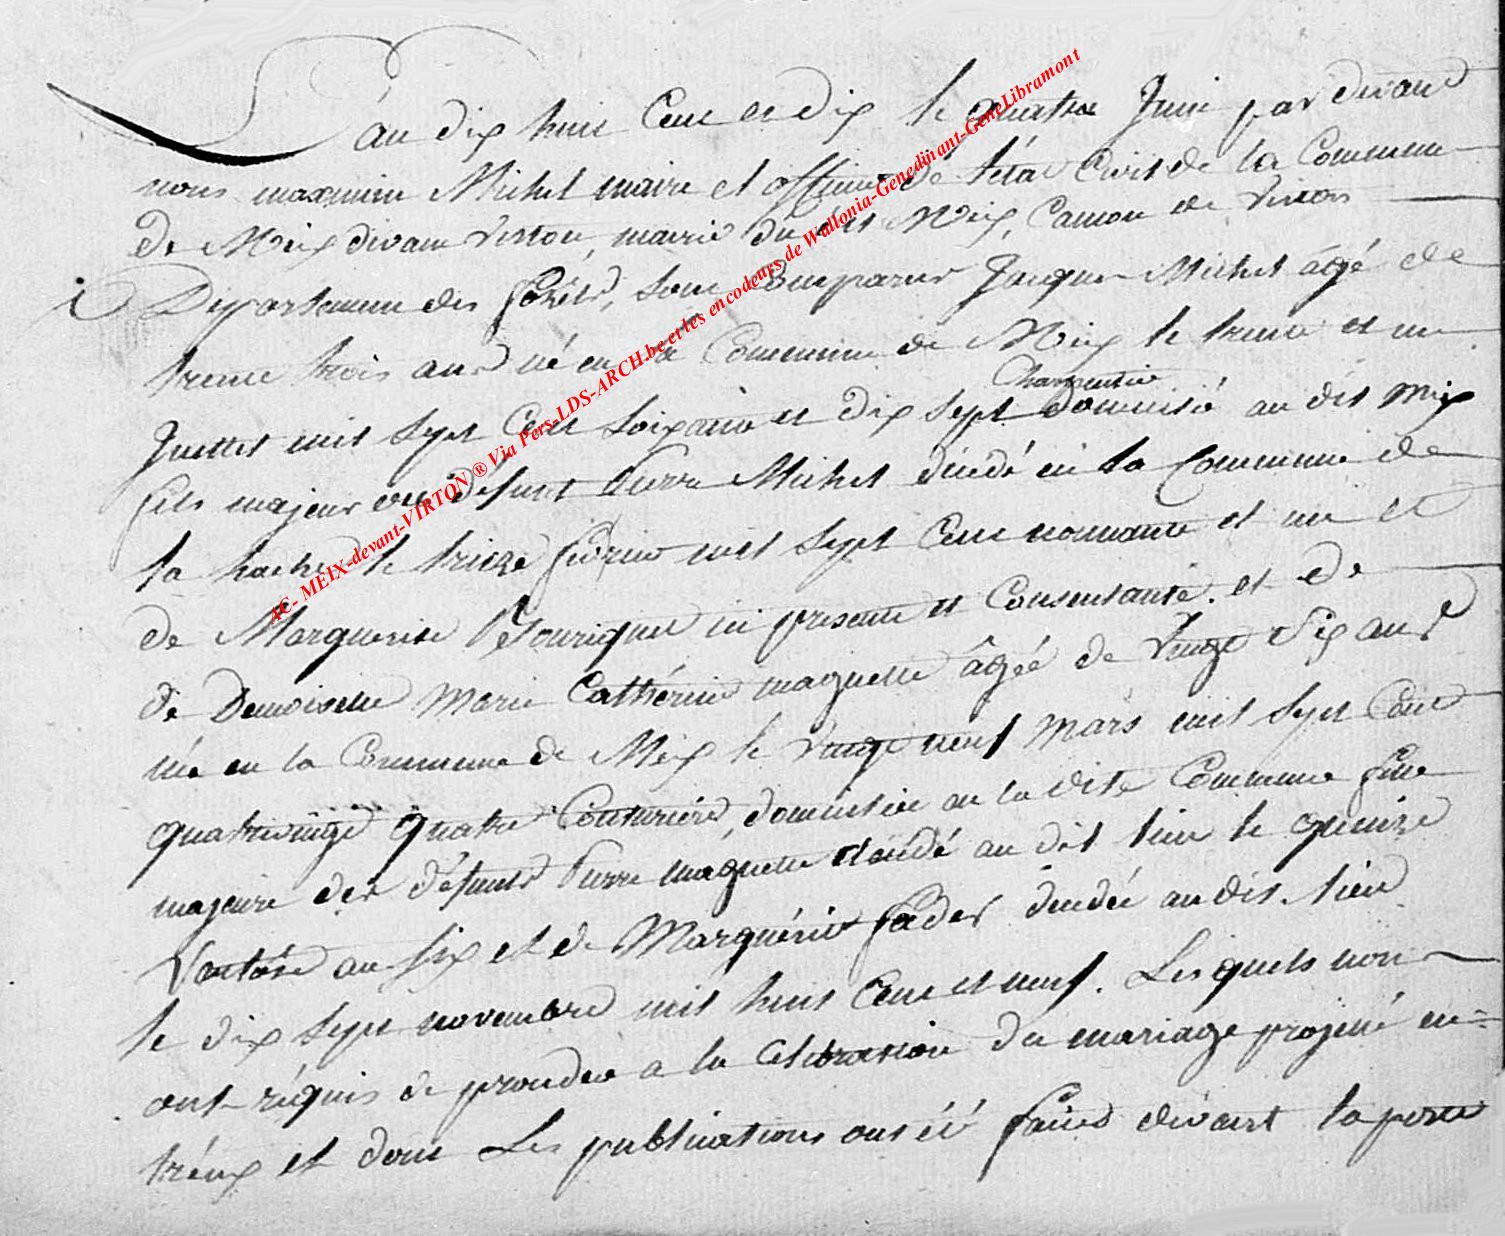 L'an dix huit Cent et dix le quatre Juin par devant
nous maximin Michel maire et officier de l'état Civil de la Commune
De Meix devant Virton, mairie du dit Meix, Canton de Virton
Departement des forêts, sont Comparus Jacques Michel âgé de
trente trois ans né en la Commune de Meix le trente et un
Charpentier
Juillet mil Sept Cent Soixante et dix Sept domicilié au dit Meix
fils majeur de défunt Pierre Michel décédé en la Commune de
la hache le treize fevrier mil Sept Cent nonante et un et
de Marguerite ici presente et Consentante. et de
de Demoiselle Marie Cathérine maguette âgée de Vingt Six ans
née en la Commune de Meix le Vingt neuf Mars mil Sept Cent
quatrevingt quatre Couturière, domiciliée en la dite Commune fille
majeure des défunts Pierre maguette décédé au dit lieu le quinze
Ventôse an Six et de Marguérite fades décédée au dit lieu
le dix Sept novembre mil huit Cent et neuf. Lesquels nous
ont réquis de proceder a la Célebration du mariage projetté en=
tréux et dont Les publications ont été faites devant la porte
AC- MEIX-devant-VIRTON ® Via Pers-LDS-ARCH.be et les encodeurs de Wallonia-Genedinant-GeneLibramont